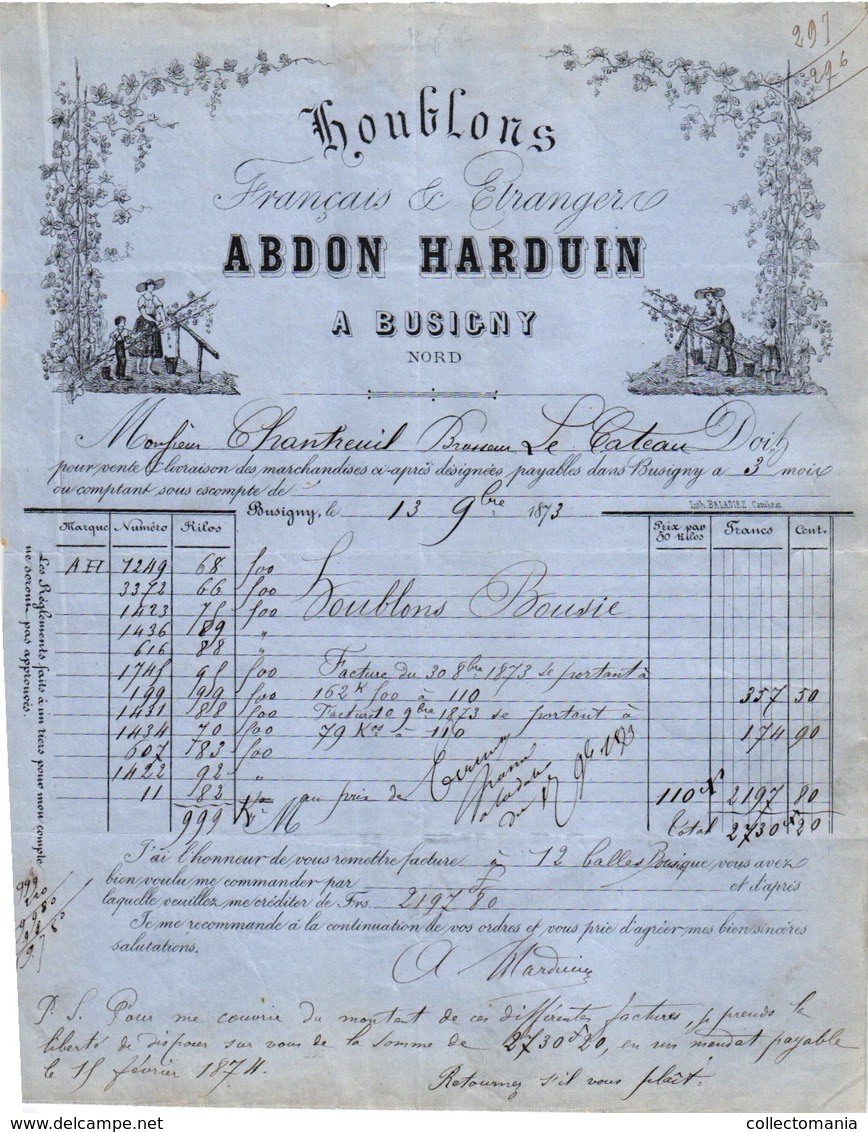 297
276
Houblons
Français & Etrangers
ABDON HARDUIN
A BUSIGNY
NORD
Monsieur Chantreuil Brasseur Le Cateau Doit
pour vente & livraison des marchandises ci-après désignées payables dans Busigny a 3 mois
ou comptant sous escompte de
Lith. BALADIEZ, Cambrai
Busigny, le 13 9bre 1873
Marque Numéro Kilos Prix par 50 Kilos Francs Cent.
AH 7249 68 f00
3372 66 f00 Houblons Bousie
1423 75 f00
1436 89 "
616 88
1745 95 f00 Facture du 30 8bre 1873 se portant à
199 99 f00 162 K f00 à 110 357 50
1431 88 f00 Facture 10 9bre 1873 se portant à
1434 70 f00 79 Kos à 110 174 90
607 83 f00
1422 92 "
11 82 au prix de 110 f 2197 80
999 K total 2730 f 20
J'ai l'honneur de vous remettre facture à 12 balles Bousie que vous avez
bien voulu me commander par et d'après
laquelle veuillez me créditer de Frs. 2197 F 80
Je me recommande à la continuation de vos ordres et vous prie d'agréer mes bien sincères
salutations.
A Harduin
P. S. Pour me couvrir du montant de ces différentes factures, je prends la
liberté de disposer sur vous de la somme de 2730 f 20, en un mandat payable
le 15 février 1874.
Retournez s'il vous plaît.
Les Réglements faits à un tiers pour mon compte
ne seront pas approuvés.
999
220
collectomania